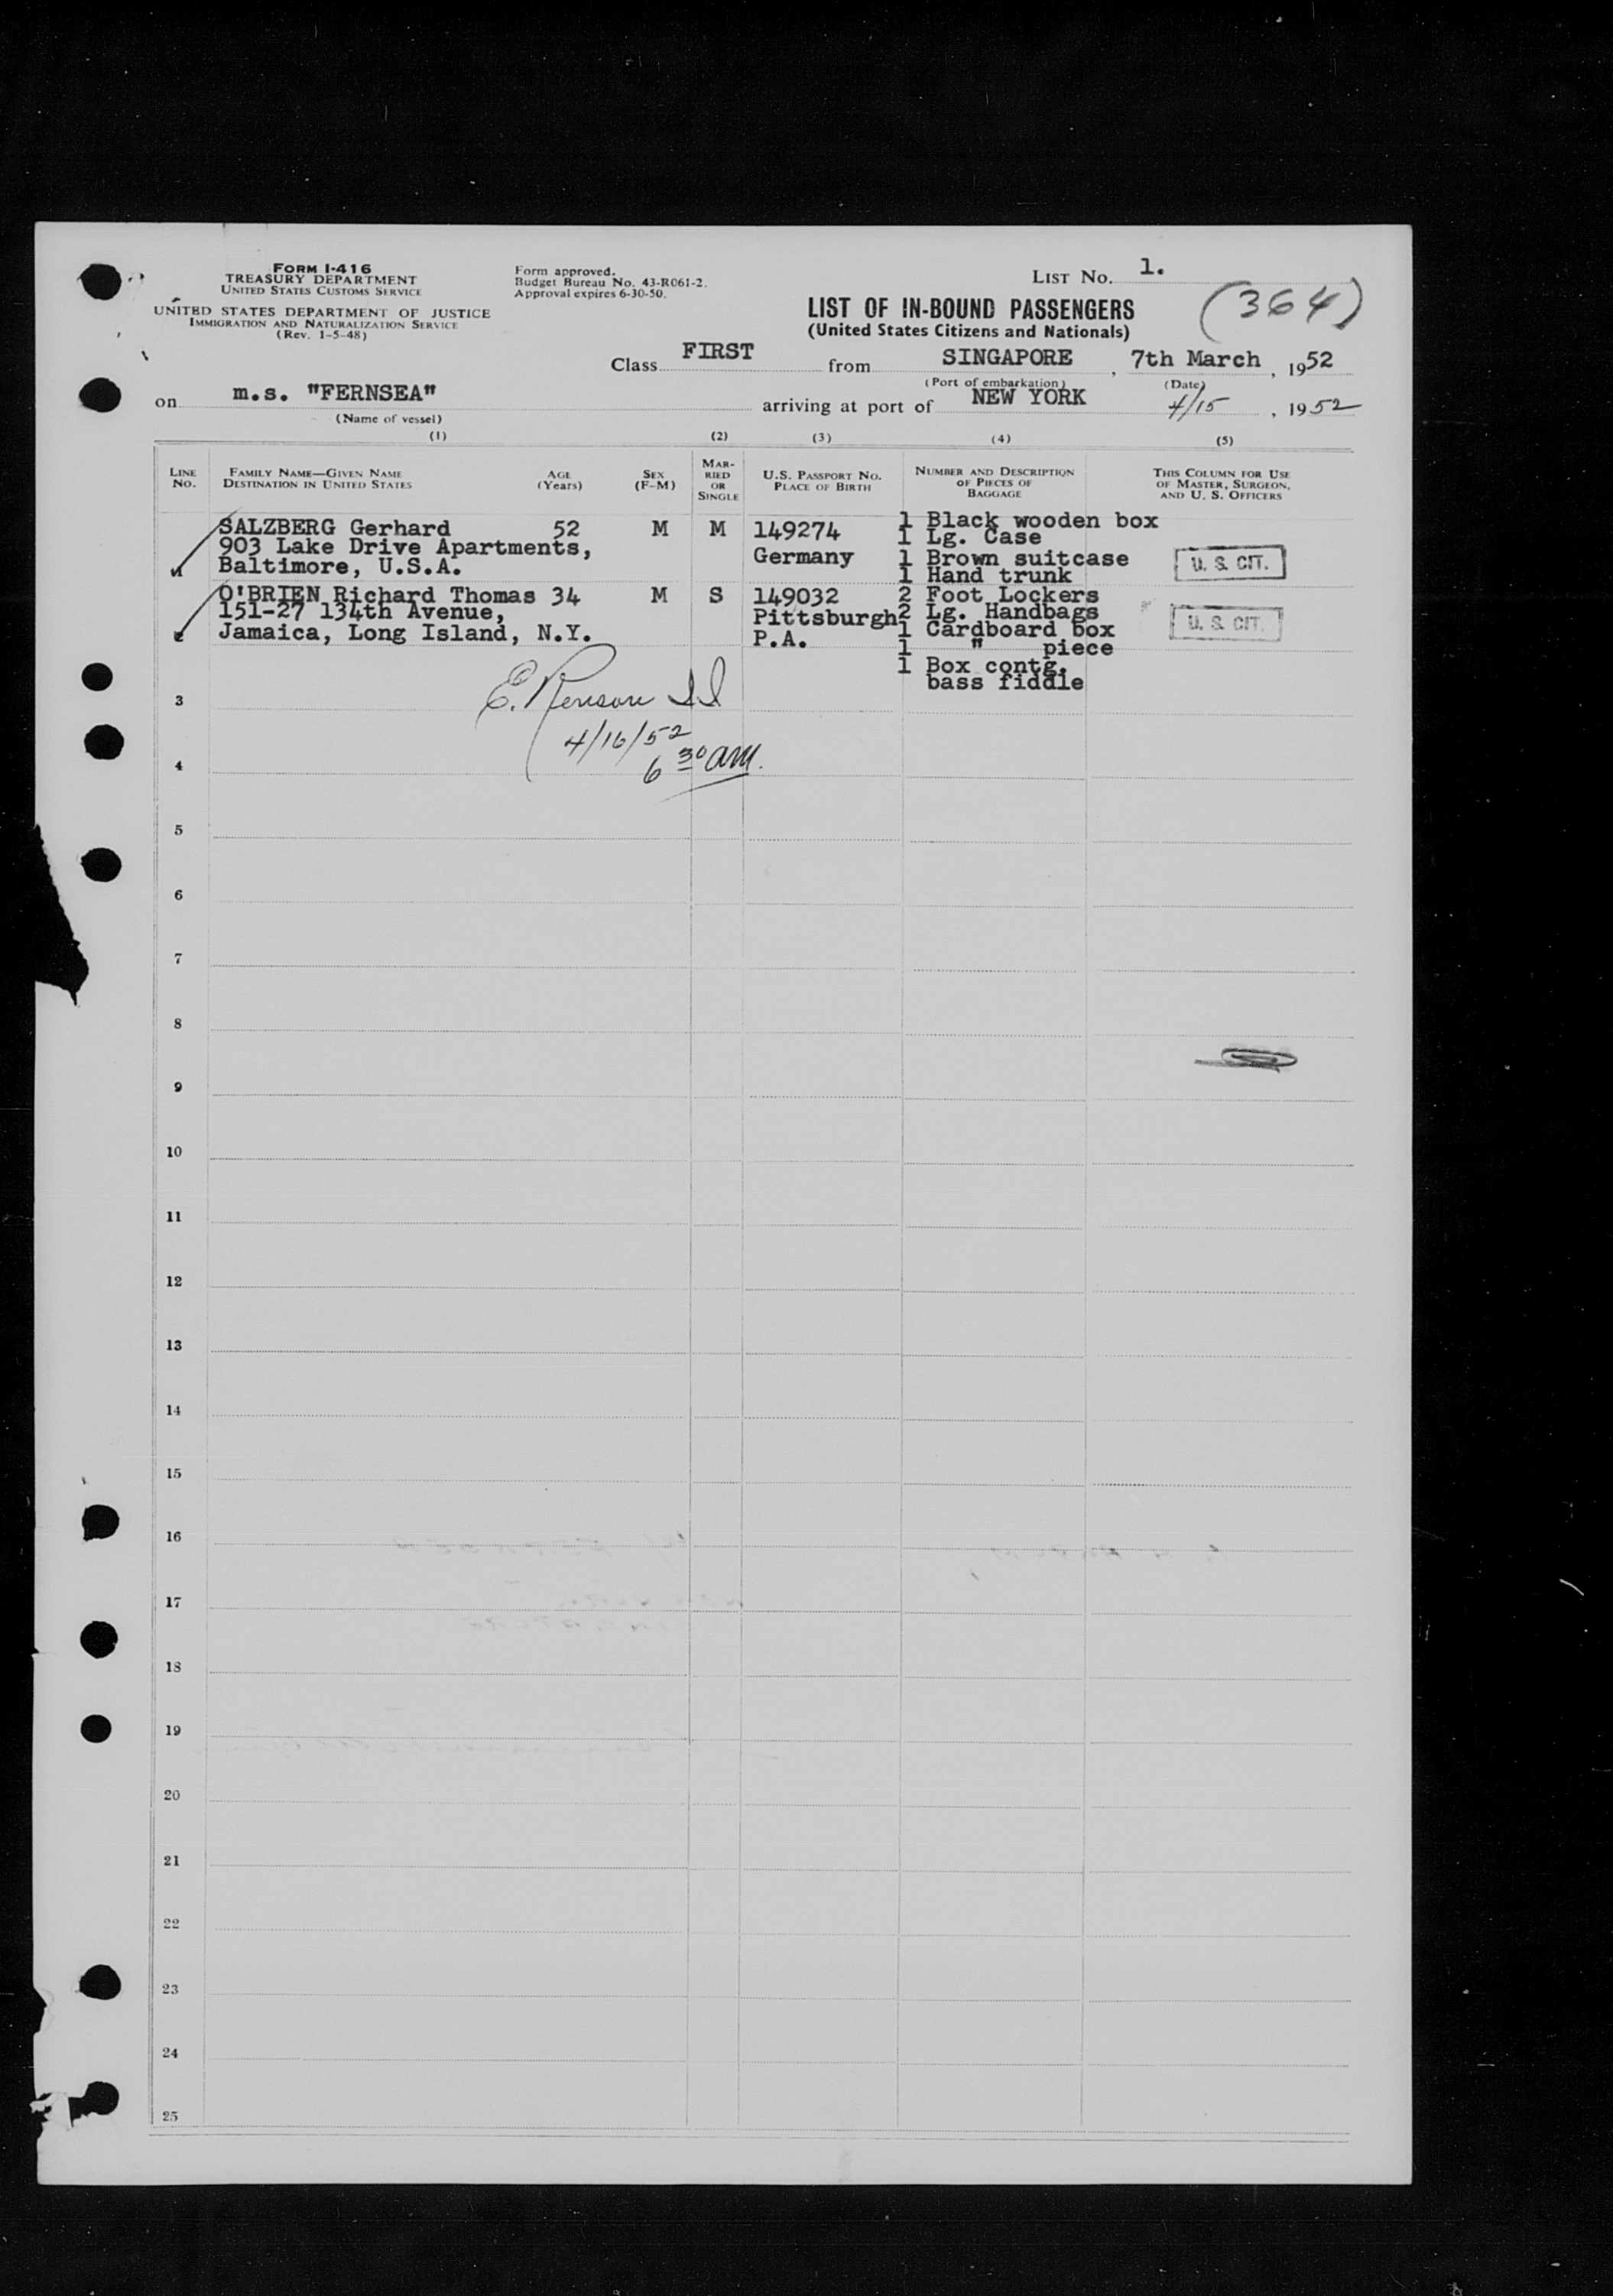 FORM I-416
TREASURY DEPARTMENT
UNITED STATES CUSTOMS SERVICE
UNITED STATES DEPARTMENT OF JUSTICE
IMMIGRATION AND NATURALIZATION SERVICE
(Rev. 1-5-48)
Form approved.
Budget Bureau No. 43-R061-2.
Approval expires 6-30-50.
LIST NO. 1.
LIST OF IN-BOUND PASSENGERS
(United States Citizens and Nationals)
(364)
Class FIRST from SINGAPORE, 7th March, 1952
(Port of embarkation) (Date)
on m.s. "FERNSEA" arriving at port of NEW YORK 4/15, 1952
(Name of vessel)
(1) (2) (3) (4) (5)
LINE NO.
FAMILY NAME—GIVEN NAME
DESTINATION IN UNITED STATES
AGE (Years)
SEX (F-M)
MARRIED OR SINGLE
U.S. PASSPORT NO.
PLACE OF BIRTH
NUMBER AND DESCRIPTION OF PIECES OF BAGGAGE
THIS COLUMN FOR USE OF MASTER, SURGEON, AND U. S. OFFICERS
SALZBERG Gerhard 52 M M 149274 1 Black wooden box
1 Lg. Case
903 Lake Drive Apartments, Germany 1 Brown suitcase U. S. CIT.
Baltimore, U.S.A. 1 Hand trunk
O'BRIEN Richard Thomas 34 M S 149032 2 Foot Lockers
151-27 134th Avenue, Pittsburgh 2 Lg. Handbags U. S. CIT.
Jamaica, Long Island, N.Y. P.A. 1 Cardboard box
1 " piece
1 Box contg.
bass fiddle
3
4/16/52
4
6 30 am.
5
6
7
8
9
10
11
12
13
14
15
16
17
18
19
20
21
22
23
24
25